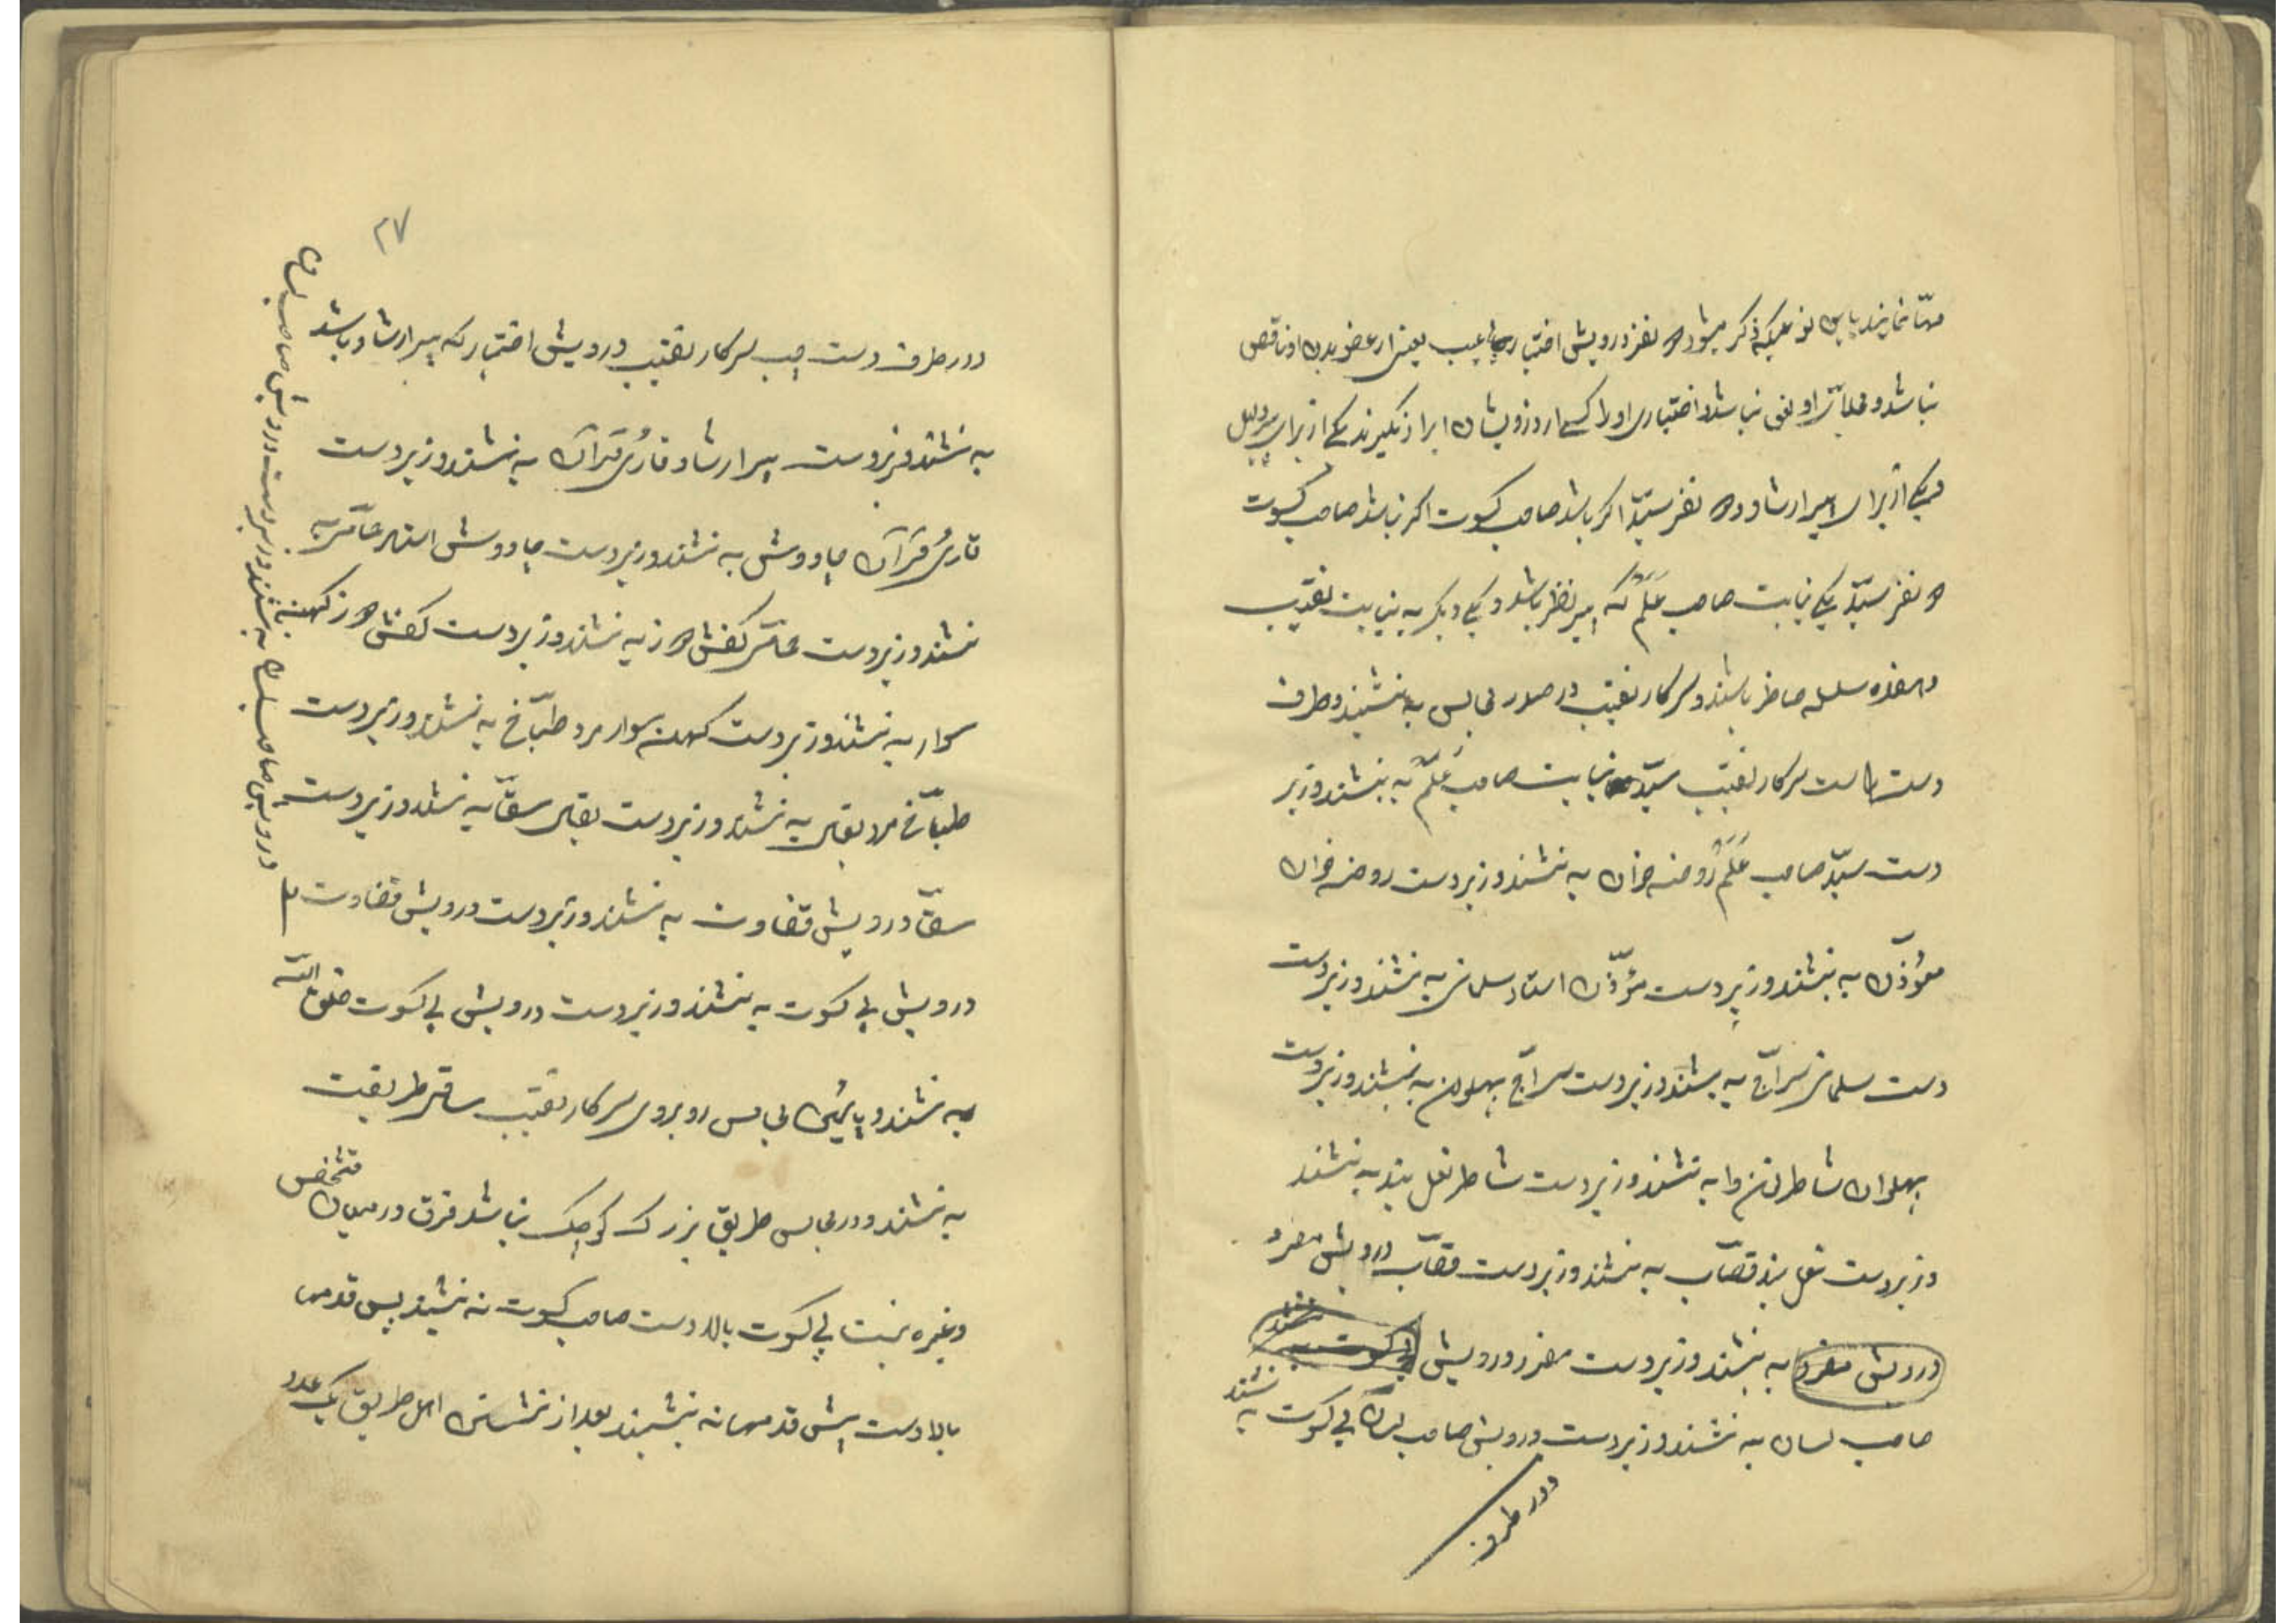 مهیّا نمایند باین نوعیکه ذکر میشود دو نفر درویش اختیار بی عیب یعنی از عضو بدن او ناقص
نباشد و اختیاری او را کسی از درویشان ایراد نگیرند یکی از برای پیر دلیل
و یکی از برای پیر ارشاد و دو نفر سیّد اگر باشد صاحب کسوت اگر نباشد صاحب کسوت
دو نفر سیّد یکی نیابت صاحب عَلَم که پیر نظر باشد و یکی دیگر به نیابت نقیب
و هفده سلسله حاضر باشند و سرکار نقیب در صدر مجالس به نشیند و طرف
دست راست سرکار نقیب سیّد نیابت صاحب عَلَم به نشیند و زیر
دست سیّد صاحب عَلَم روضه خوان به نشند و زیردست روضه خوان
مؤذّن به نشند و زیردست مؤذّن استاد سلمانی به نشند و زیردست
دست سلمانی سرّاج به نشند و زیردست سرّاج پهلوان به نشند و زیردست
پهلوان شاطر به نشند و زیردست شاطر نعل بند به نشند
و زیردست نعل بند قصّاب به نشند و زیردست قصّاب درویش مفرد
درویش مفرد به نشند و زیردست مفرد درویش بی کسوت به نشند
صاحب لسان به نشند و زیردست درویش صاحب لسان بی کسوت به نشند
و در طرف
۲۷
و در طرف دست چپ سرکار نقیب درویش اختیار که پیر ارشاد باشد
به نشند و زیردست پیر ارشاد قاریُ قرآن به نشند و زیردست
قاریُ قرآن چاووش به نشند و زیردست چاووش استاد به
نشند و زیردست کفش دوز به نشند و زیردست کفش دوز کهنه
سوار به نشند و زیردست کهنه سوار مرد طبّاخ به نشند و زیردست
طبّاخ مرد بقّال به نشند و زیردست بقّال سقّا به نشند و زیردست
سقّا درویش قضاوت به نشند و زیردست درویش قضاوت
درویش بی کسوت به نشند و زیردست درویش بی کسوت خلق الله
به نشند و پایین مجالس روبروی سرکار نقیب ساقی طریقت
به نشند و در مجالس طریق بزرگ کوچک نباشد فرق در میان شخص
و غیره نیست بی کسوت بالا دست صاحب کسوت نه نشیند پس قدمها
بالا دست پیش قدمها نه نشیند بعد از نشستن اهل طریق یک عدد
درویش صاحب به نشند و زیردست درویش صاحب